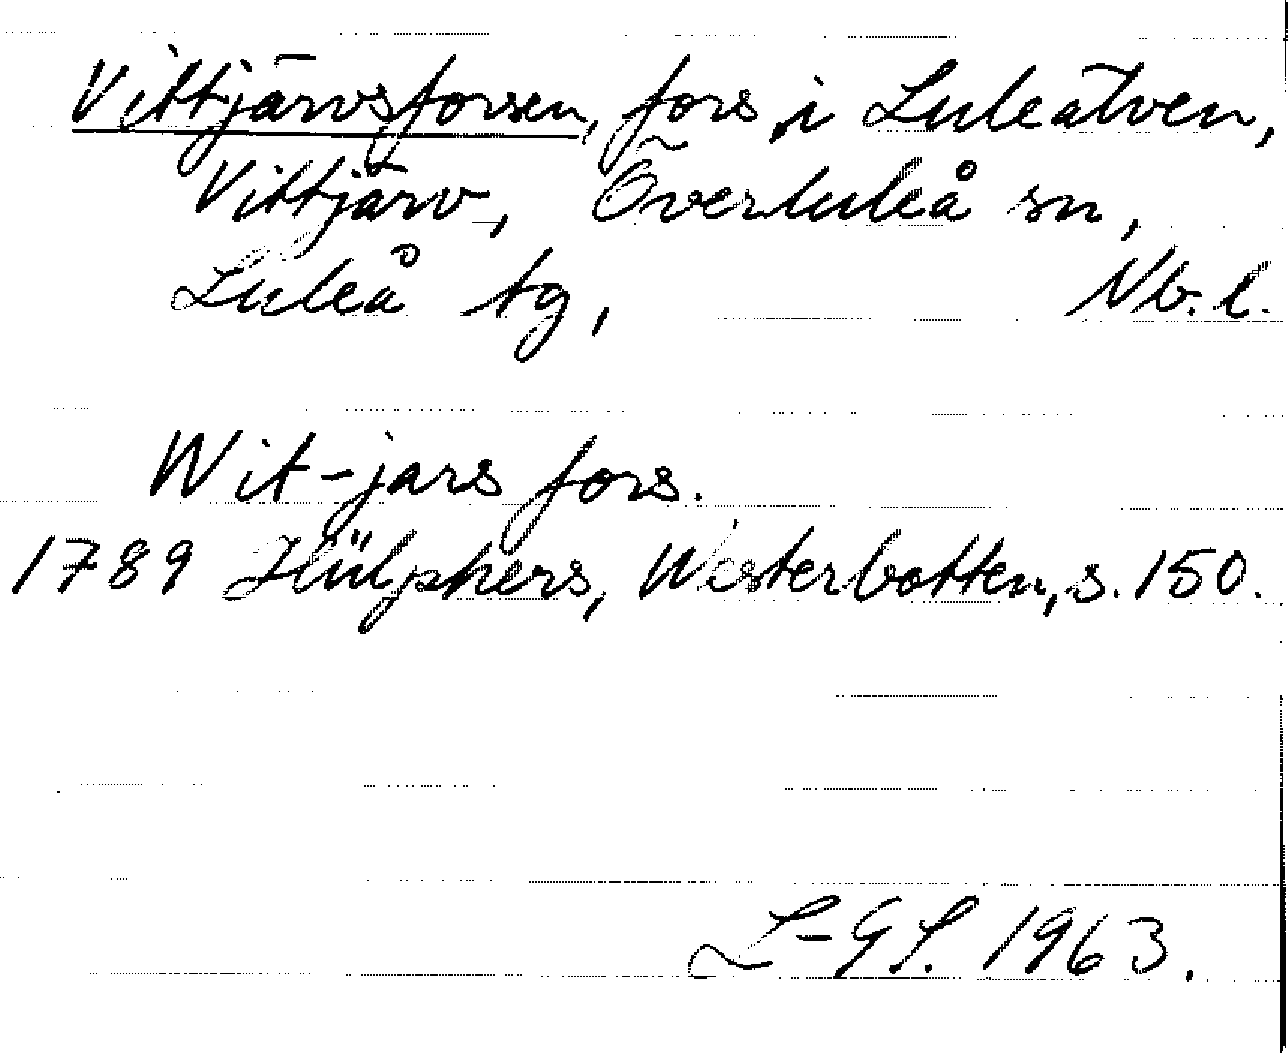 Vittjärvsforsen, fors i Luleälven,
Vittjärv, Överluleå sn,
Luleå tg, Nb. l.
Wit-jars fors.
1789 Hülphers, Westerbotten, s. 150.
L-GS. 1963.